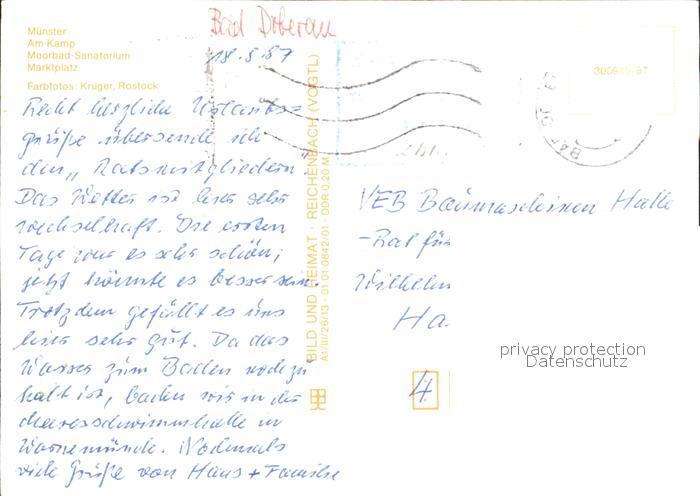 Bad Doberan
18.5.87
Münster
Am Kamp
Moorbad-Sanatorium
Marktplatz
Farbfotos: Krüger, Rostock
Recht herzliche Urlaubs=
grüße übersende ich
den „Ratsmitgliedern".
Das Wetter ist hier sehr
wechselhaft. Die ersten
Tage war es sehr schön;
jetzt könnte es besser sein.
Trotzdem gefällt es uns
hier sehr gut. Da das
Wasser zum Baden noch zu
kalt ist, baden wir in der
Meeresschwimmhalle in
Warnemünde. Nochmals
viele Grüße von Hans + Familie
BILD UND HEIMAT · REICHENBACH (VOGTL)
A1/III/26/13 · 01 01 0842/01 · DDR 0,20 M
VEB Baumaschinen Halle
-Rat für
Wilhelm
Ha.
4
privacy protection
Datenschutz